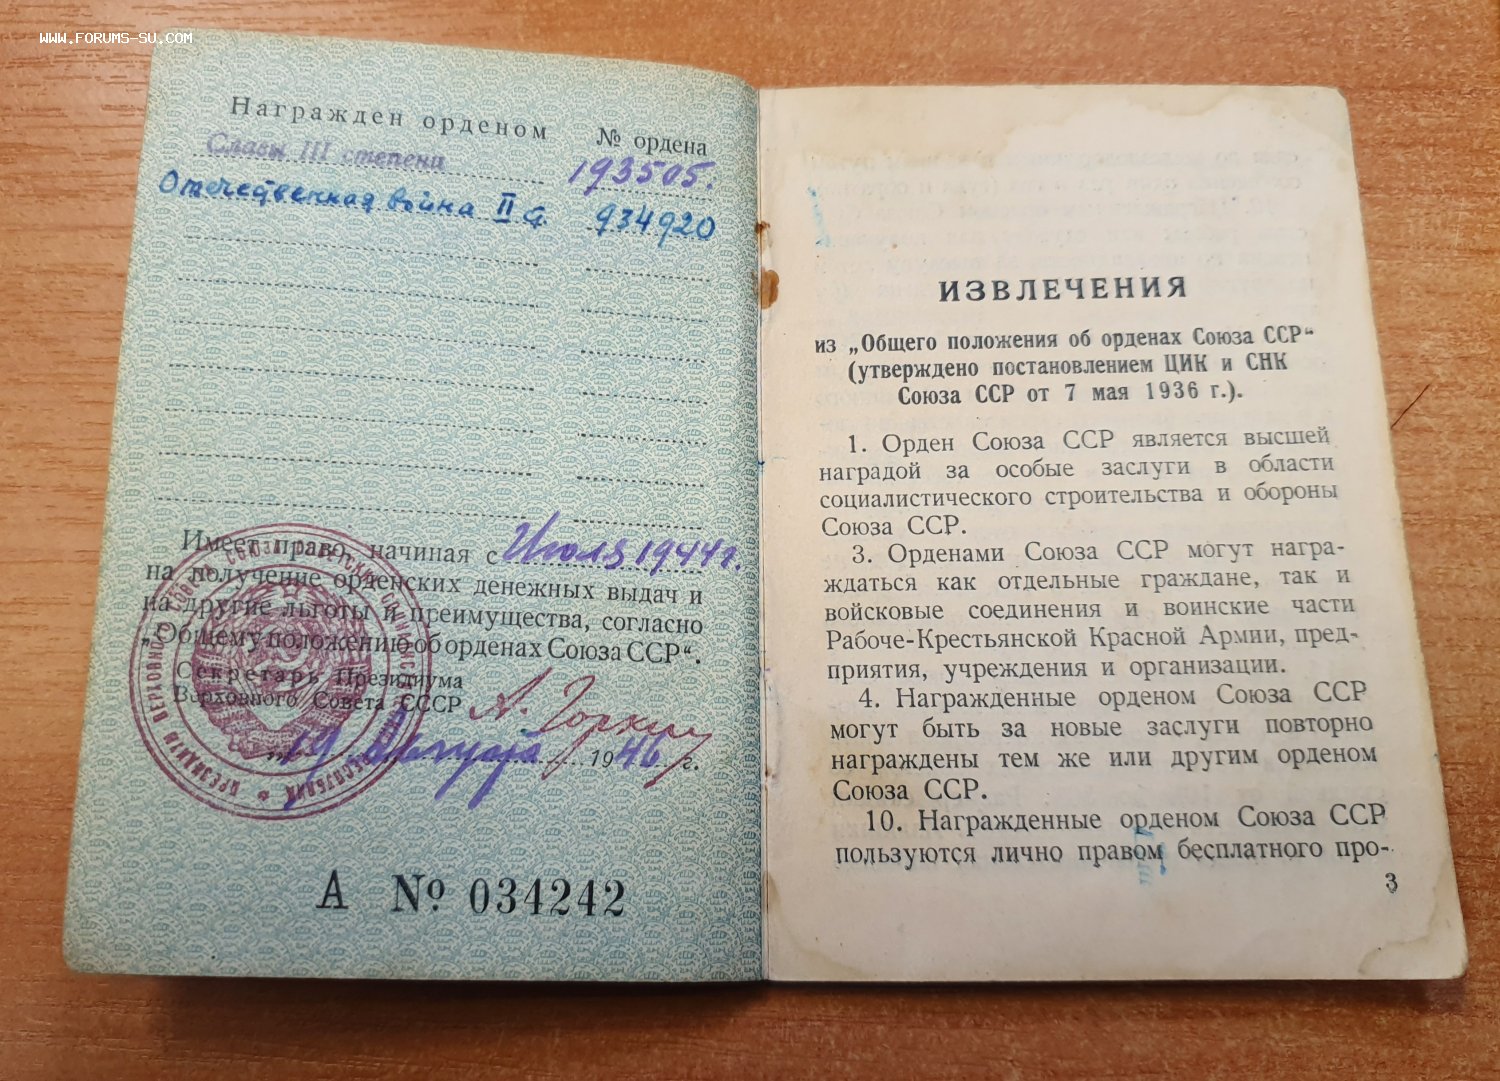 WWW.FORUMS-SU.COM
Награжден орденом № ордена
Славы III степени 193505.
Отечественная война II ст. 934920
Имеет право, начиная с Июля 1944г.
на получение орденских денежных выдач и
на другие льготы и преимущества, согласно
„Общему положению об орденах Союза ССР“.
Секретарь Президиума
Верховного Совета СССР А. Горкин
19 Августа 1946 г.
А № 034242
ИЗВЛЕЧЕНИЯ
из „Общего положения об орденах Союза ССР“
(утверждено постановлением ЦИК и СНК
Союза ССР от 7 мая 1936 г.).
1. Орден Союза ССР является высшей
наградой за особые заслуги в области
социалистического строительства и обороны
Союза ССР.
3. Орденами Союза ССР могут награ-
ждаться как отдельные граждане, так и
войсковые соединения и воинские части
Рабоче-Крестьянской Красной Армии, пред-
приятия, учреждения и организации.
4. Награжденные орденом Союза ССР
могут быть за новые заслуги повторно
награждены тем же или другим орденом
Союза ССР.
10. Награжденные орденом Союза ССР
пользуются лично правом бесплатного про-
3